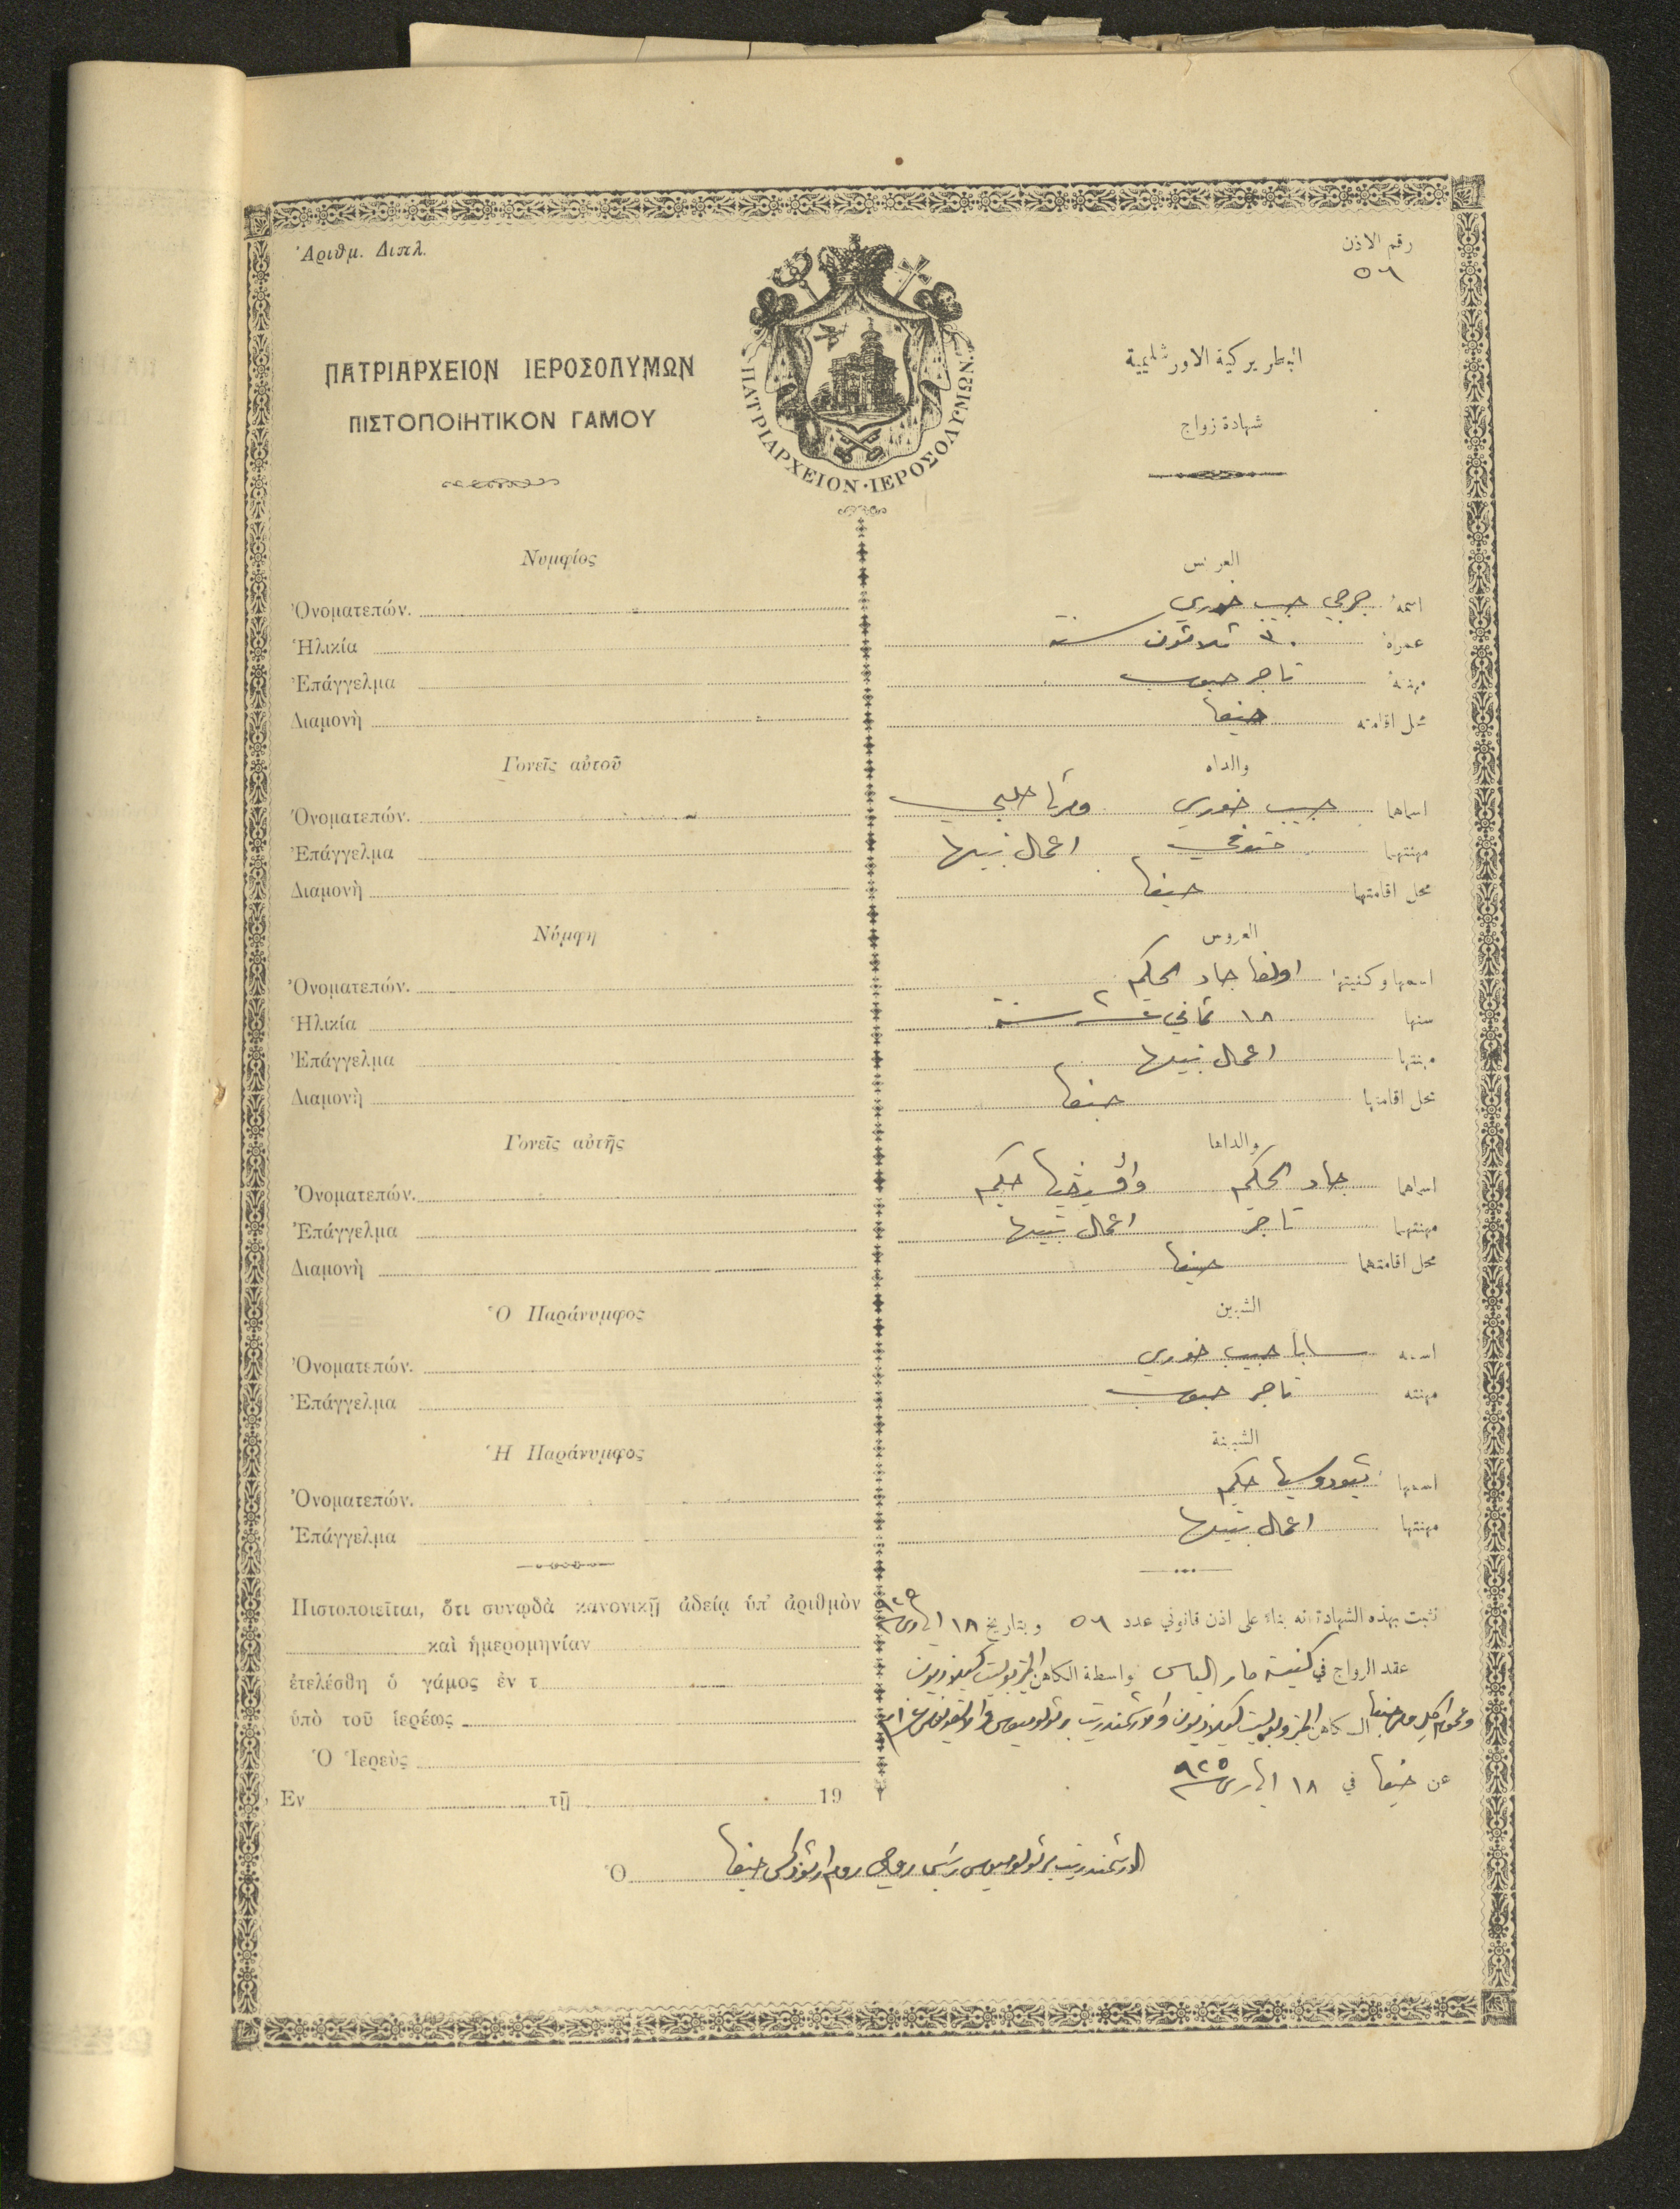 Ἀριθμ. Διπλ.
رقم الاذن
٥٦
ΠΑΤΡΙΑΡΧΕΙΟΝ ΙΕΡΟΣΟΛΥΜΩΝ
ΠΙΣΤΟΠΟΙΗΤΙΚΟΝ ΓΑΜΟΥ
ΠΑΤΡΙΑΡΧΕΙΟΝ·ΙΕΡΟΣΟΛΥΜΩΝ·
البطريركية الاورشليمية
شهادة زواج
Νυμφίος
Ὀνοματεπών.
Ἡλικία
Ἐπάγγελμα
Διαμονὴ
Γονεῖς αὐτοῦ
Ὀνοματεπών.
Ἐπάγγελμα
Διαμονὴ
Νύμφη
Ὀνοματεπών.
Ἡλικία
Ἐπάγγελμα
Διαμονὴ
Γονεῖς αὐτῆς
Ὀνοματεπών.
Ἐπάγγελμα
Διαμονὴ
Ὁ Παράνυμφος
Ὀνοματεπών.
Ἐπάγγελμα
Ἡ Παράνυμφος
Ὀνοματεπών.
Ἐπάγγελμα
Πιστοποιεῖται, ὅτι συνῳδὰ κανονικῇ ἀδείᾳ ὑπ' ἀριθμὸν
καὶ ἡμερομηνίαν
ἐτελέσθη ὁ γάμος ἐν τ
ὑπὸ τοῦ ἱερέως
Ὁ Ἱερεὺς
Ἐν τῇ 19
العريس
اسمه جرجي حبيب خوري
عمره ٣٠ ثلاثون سنة
مهنته تاجر حبوب
محل اقامته حيفا
والداه
اسماهما حبيب خوري ومرتا حلبي
مهنتهما اعمال بيتها
محل اقامتهما حيفا
العروس
اسمها وكنيتها اولغا جاد الحكيم
سنها ١٨ ثماني عشر سنة
مهنتها اعمال بيتها
محل اقامتها حيفا
والداها
اسماهما جاد الحكيم حكيم
مهنتهما تاجر اعمال بيتها
محل اقامتهما حيفا
الشبين
اسمه سابا حبيب خوري
مهنته تاجر حبوب
الشبينة
اسمها تيودوسيا حكيم
مهنتها اعمال بيتها
تثبت بهذه الشهادة انه بناء على اذن قانوني عدد ٥٦ وبتاريخ ١٨ ايار سنة ٩٢٥
عقد الزواج في كنيسة مار الياس بواسطة الكاهن المتروبوليت كيلاذيون
الكاهن المتروبوليت كيلاذيون والارشمندريت برثولوميوس
عن حيفا في ١٨ ايار سنة ٩٢٥
Ὁ الارشمندريت برثولوميوس رئيس روحي روم ارثوذكس حيفا